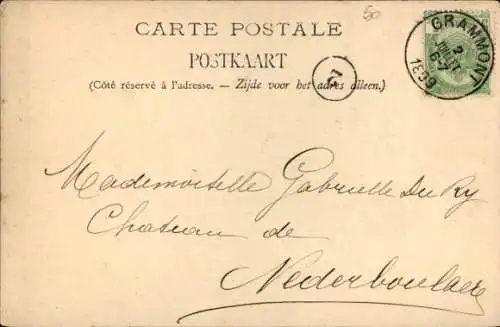 50
CARTE POSTALE
POSTKAART
(Côté réservé à l'adresse. — Zijde voor het adres alleen.)
GRAMMONT
2
JUILLET
6-7
1899
Mademoiselle Gabrielle Du Ry
Chateau de
Nederboulaere